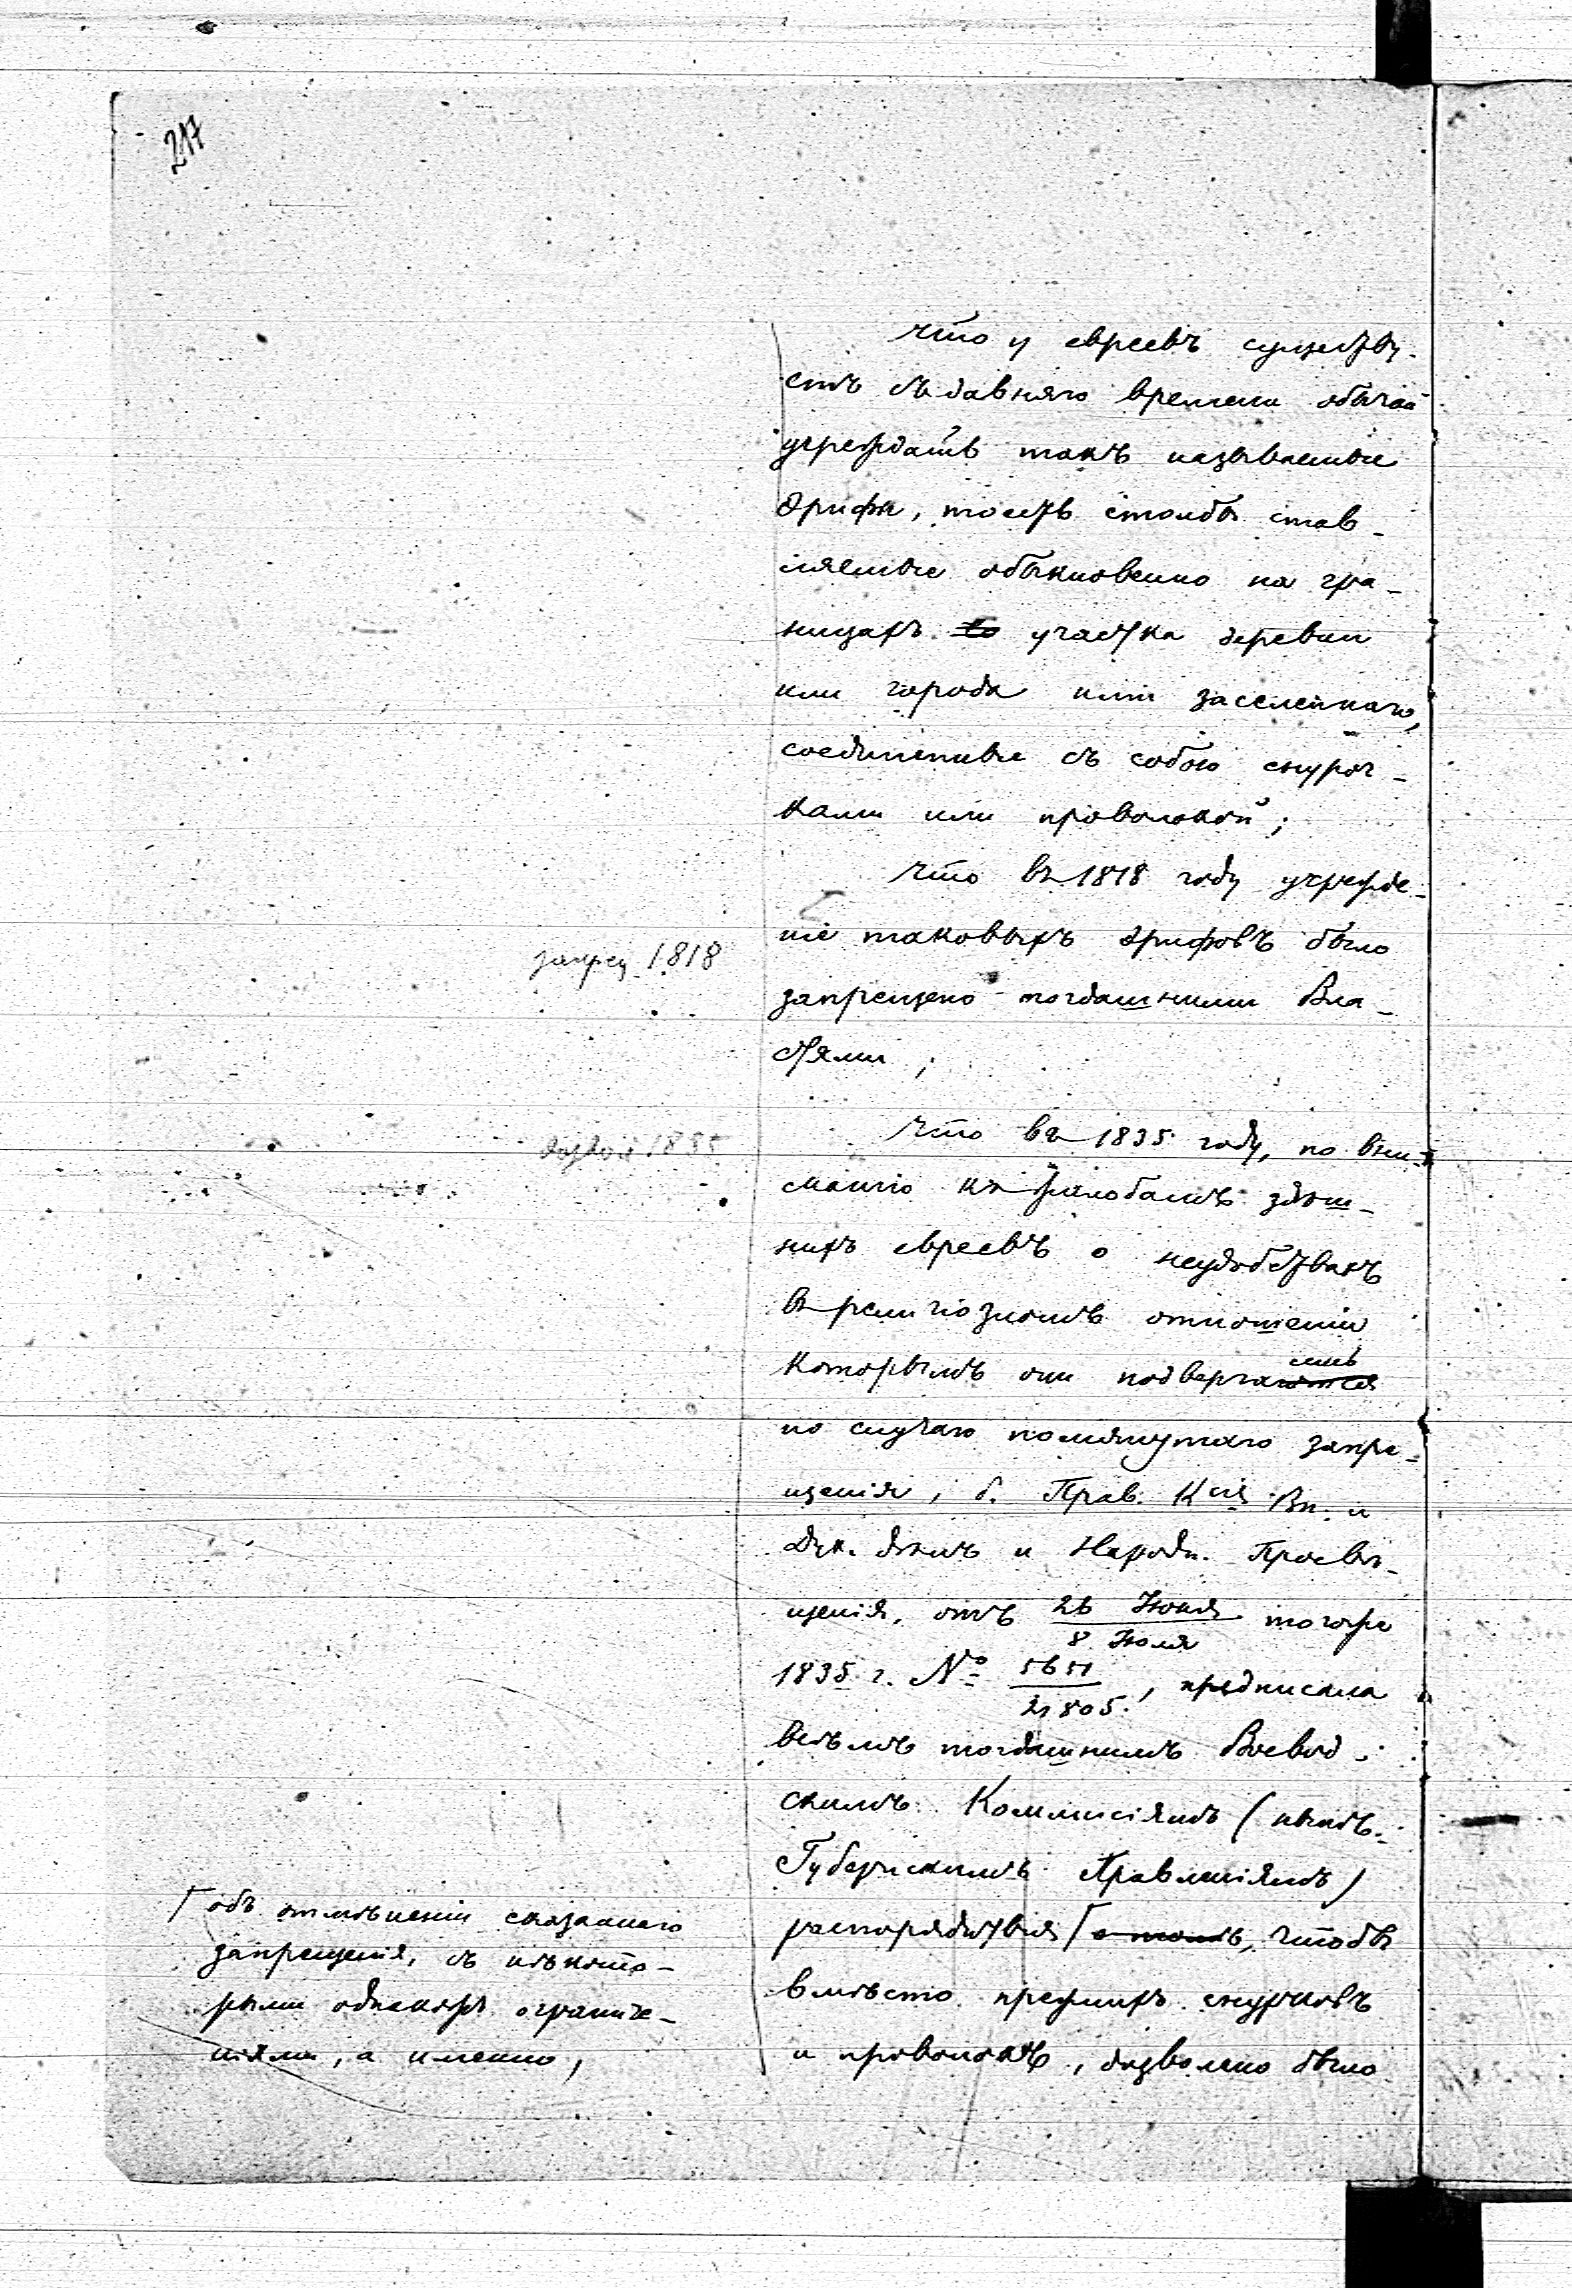 217
Что у евреевъ существу-
етъ съ давняго времени обычай
учреждать такъ называемые
эрифы, то есть столбы став-
ляемые обыкновенно на гра-
ницахъ участка деревни
или города ими заселеннаго,
соединенные съ собою снуроч-
ками или проволокой;
Что въ 1818 году учрежде-
ніе таковыхъ эрифовъ было
запрещено тогдашними Вла-
стями;
запрещ 1818
Что въ 1835 году, по вни-
манію къ жалобамъ здѣш-
нихъ евреевъ о неудобствахъ
въ религіозномъ отношеніи
которымъ они подвергаются
по случаю помянутаго запре-
щенія, б. Прав. Ксія Вн. и
Дух. дѣлъ и Народн. Просвѣ-
щенія, отъ 26 Іюня / 8 Іюля тогоже
1835 г. № 5651 / 21805, предписала
всѣмъ тогдашнимъ Воевод-
скимъ Коммисіямъ (нынѣ
Губернскимъ Правленіямъ)
распорядиться о томъ, чтобы
вмѣсто прежнихъ снурковъ
и проволокъ, дозволено было
дозвол 1835
объ отмѣненіи сказаннаго
запрещенія, съ нѣкото-
рыми однакожъ ограниче-
ніями, а именно,